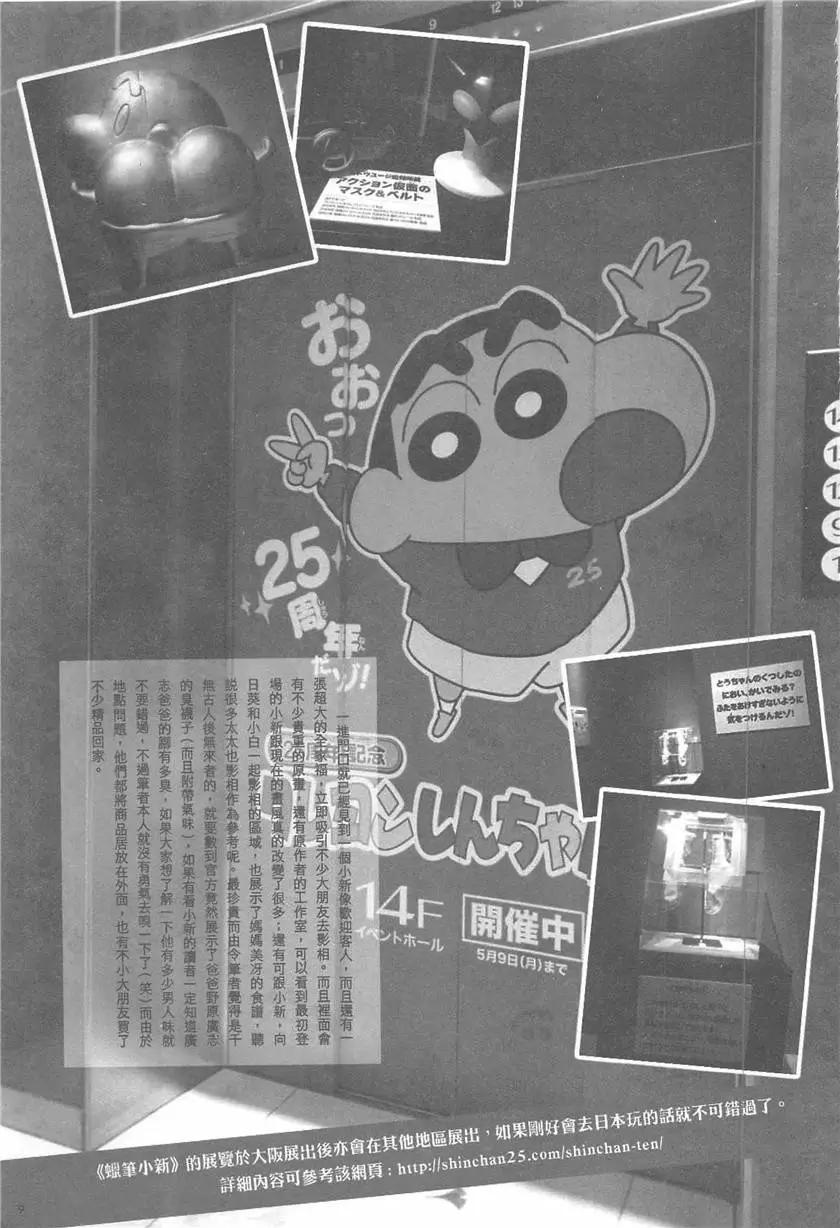 9
12
13
アクション仮面の
マスク&ベルト
おおっ
25
周年だゾ!
しゅう
ねん
25
記念
しんちゃん
14F
イベントホール
開催中
5月9日(月)まで
とうちゃんのくつしたの
におい、かいでみる?
ふたをあけすぎないように
気をつけるんだゾ!
一進門口就已經見到一個小新像歡迎客人,而且還有一
張超大的全家福,立即吸引不少大朋友去影相。而且裡面會
有不少貴重的原畫,還有原作者的工作室,可以看到最初登
場的小新跟現在的畫風真的改變了很多;還有可跟小新,向
日葵和小白一起影相的區域,也展示了媽媽美冴的食譜,聽
說很多太太也影相作為參考呢。最珍貴而由令筆者覺得是千
無古人後無來者的,就要數到官方竟然展示了爸爸野原廣志
的臭襪子(而且附帶氣味),如果有看小新的讀者一定知道廣
志爸爸的腳有多臭,如果大家想了解一下他有多少男人味就
不要錯過,不過筆者本人就沒有勇氣去嗅一下了(笑)而由於
地點問題,他們都將商品居放在外面,也有不小大朋友買了
不少精品回家。
《蠟筆小新》的展覽於大阪展出後亦會在其他地區展出,如果剛好會去日本玩的話就不可錯過了。
詳細內容可參考該網頁:http://shinchan25.com/shinchan-ten/
9